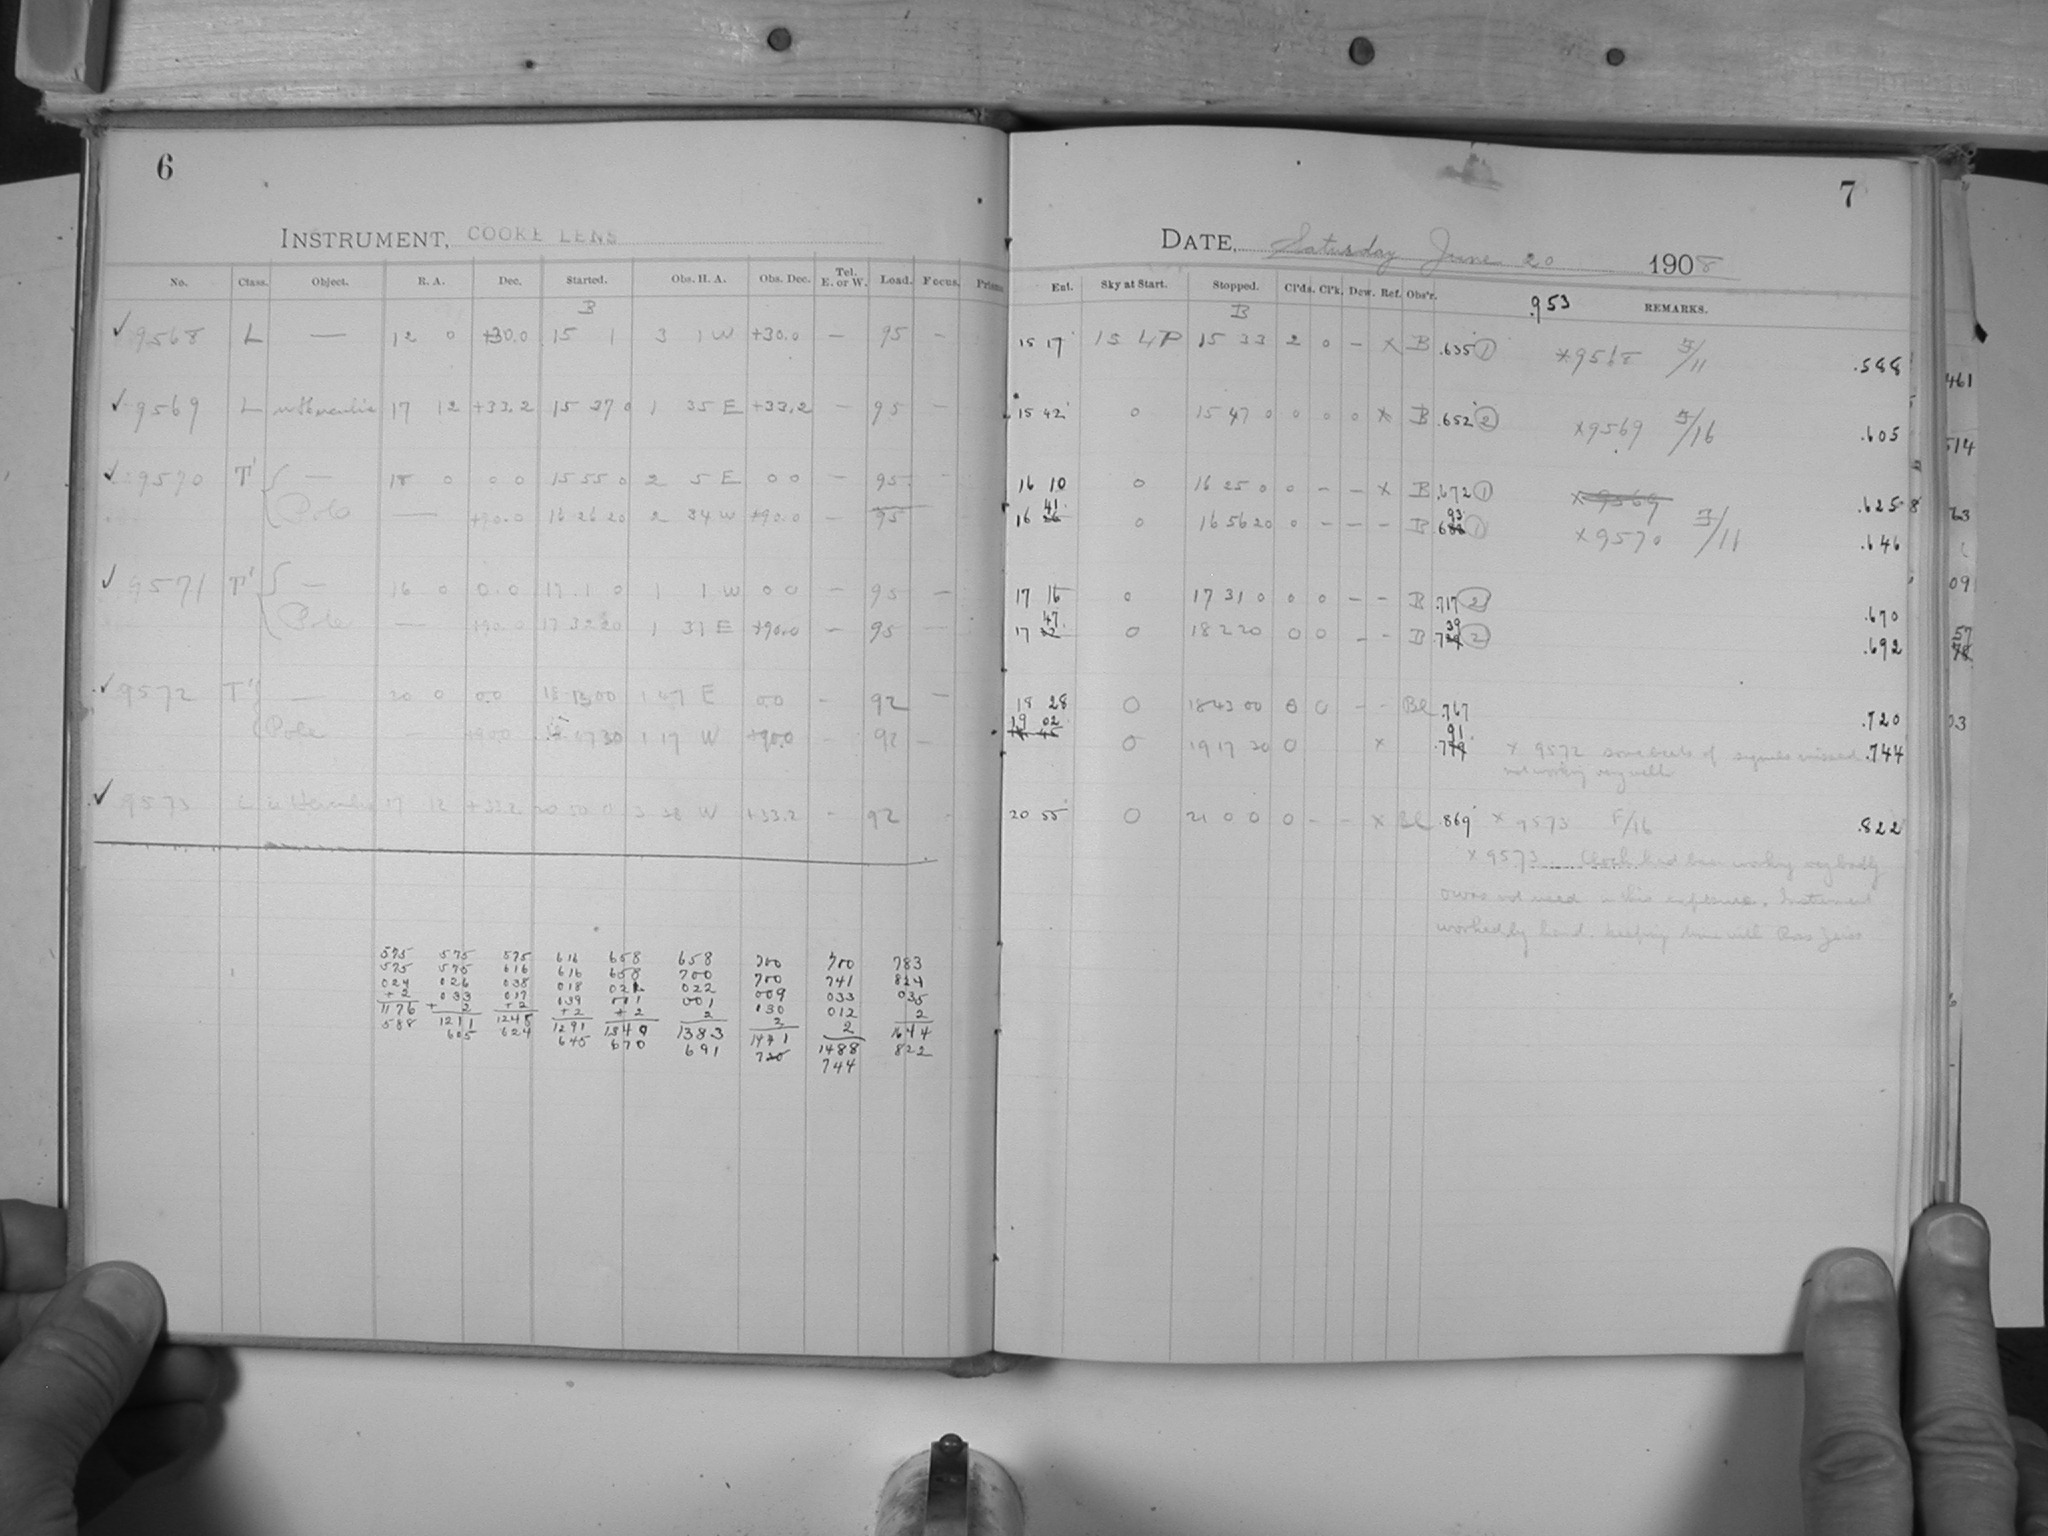 6
INSTRUMENT, COOKE LENS
No. Class. Object. R. A. Dec. Started. Obs. H. A. Obs. Dec. Tel. E. or W. Load. Focus. Prisms
B
✓ 9568 L — 12 0 +30.0 15 1 3 1 W +30.0 — 95 —
✓ 9569 L 17 12 +33.2 15 37 0 1 35 E +33.2 — 95 —
✓ 9570 T' { — 18 0 0 0 15 55 0 2 5 E 0 0 — 95 —
Pole — +90.0 16 26 20 2 34 W +90.0 — 95
✓ 9571 T' { — 16 0 0.0 17 1 0 1 1 W 0 0 — 95 —
Pole — +90.0 17 32 20 1 31 E +90.0 — 95 —
✓ 9572 T' { — 20 0 0.0 18 13 00 1 47 E 0.0 — 92 —
Pole — +90.0 17 30 1 17 W +90.0 — 92 —
✓ 9573 L u Herculis 17 12 +33.2 20 50 0 3 38 W +33.2 — 92
575 575 575 616 658 658 700 700 783
575 575 616 616 658 700 700 741 824
024 026 038 018 021 022 009 033 035
+2 033 017 039 001 001 030 012 2
1176 + 2 +2 +2 +2 2 2 2 1644
588 1211 1248 1291 1340 1383 1441 1488 822
605 624 645 670 691 720 744
7
DATE, Saturday June 20 1908
Ent. Sky at Start. Stopped. Cl'ds. Cl'k. Dew. Ref. Obs'r. .953 REMARKS.
B
15 17 15 LP 15 33 2 0 — x B .635 1 x9568 F/11 .588
15 42 0 15 47 0 0 0 0 x B .652 2 x9569 F/16 .605
16 10 0 16 25 0 0 — — x B .672 1 x9569 .625
41 93
16 26 0 16 56 20 0 — — — B .688 1 x9570 F/11 .646
17 16 0 17 31 0 0 0 — — B .717 2 .670
47 39
17 32 0 18 2 20 0 0 — — B .729 2 .692
18 28 0 18 43 00 0 0 — — Bl .767 .720
19 02 91
0 19 17 20 0 x .779 x 9572 some beats of signals missed .744
not working very well
20 55 0 21 0 0 0 — — x Bl .869 x 9573 F/16 .822
x 9573 Clock had been working very badly
& was not used in this exposure. Instrument
worked by hand keeping time with Ross Zeiss
461
514
63
09
57
03